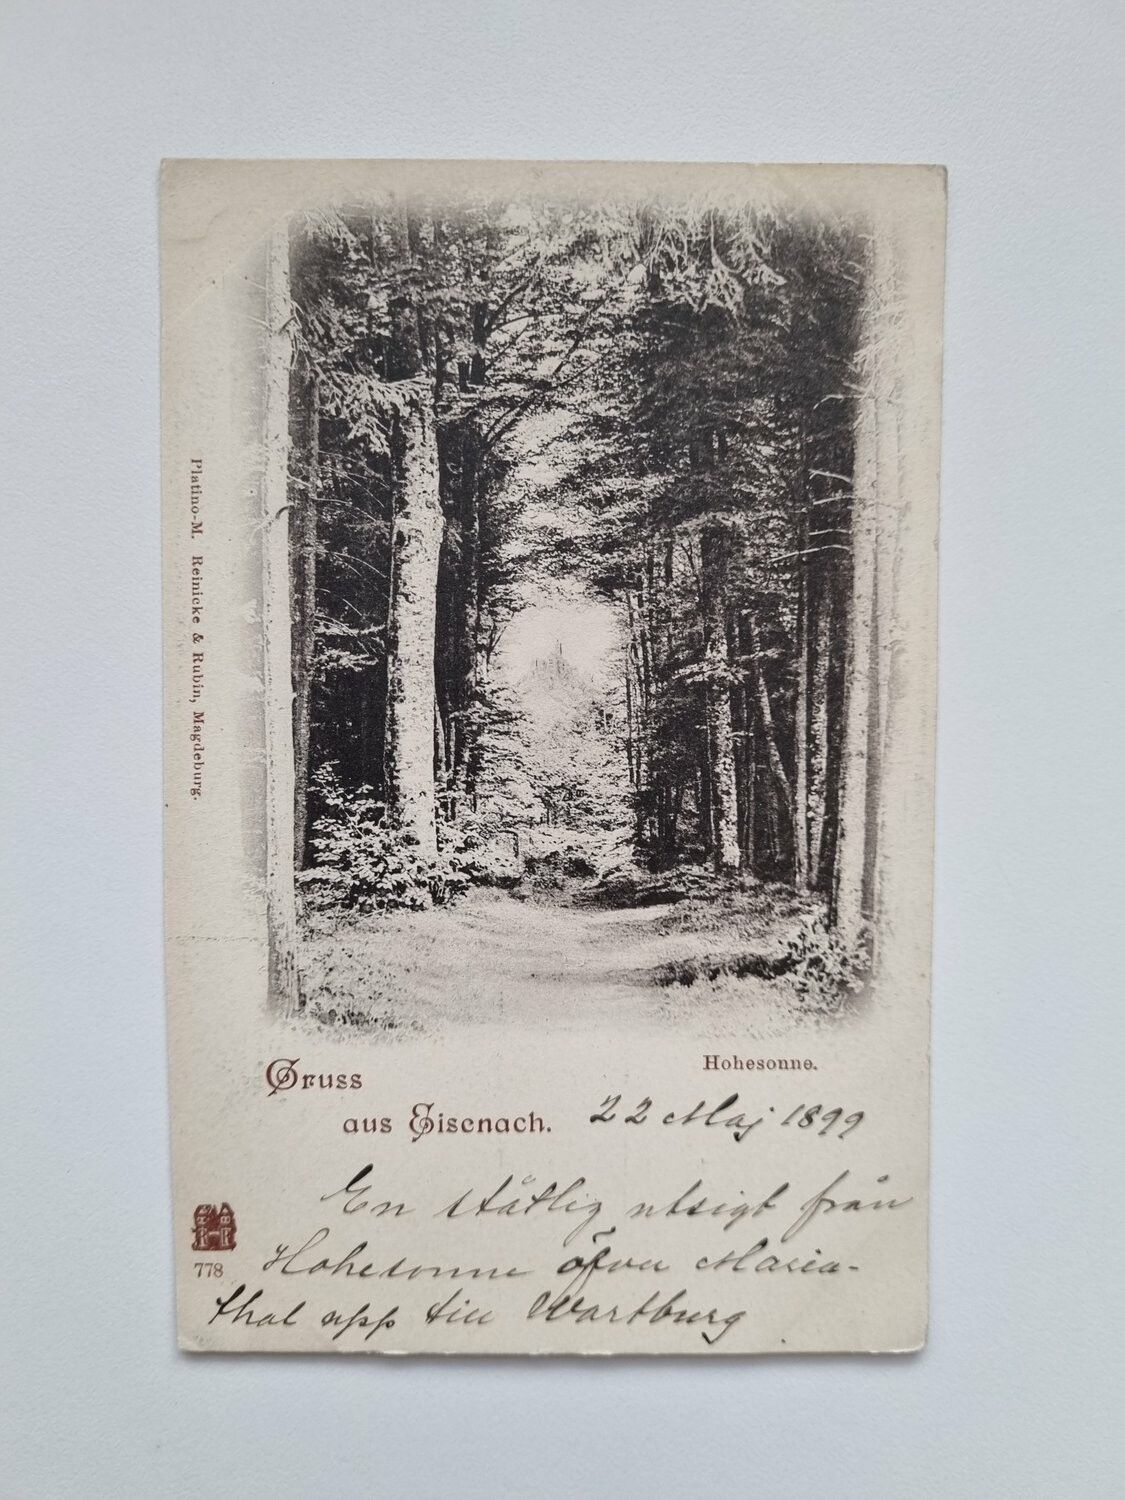 Platino-M. Reinicke & Rubin, Magdeburg.
Hohesonne.
Gruss
aus Eisenach.
22 Maj 1899
En ståtlig utsigt från
778
Hohesonne öfver Maria-
thal upp till Wartburg